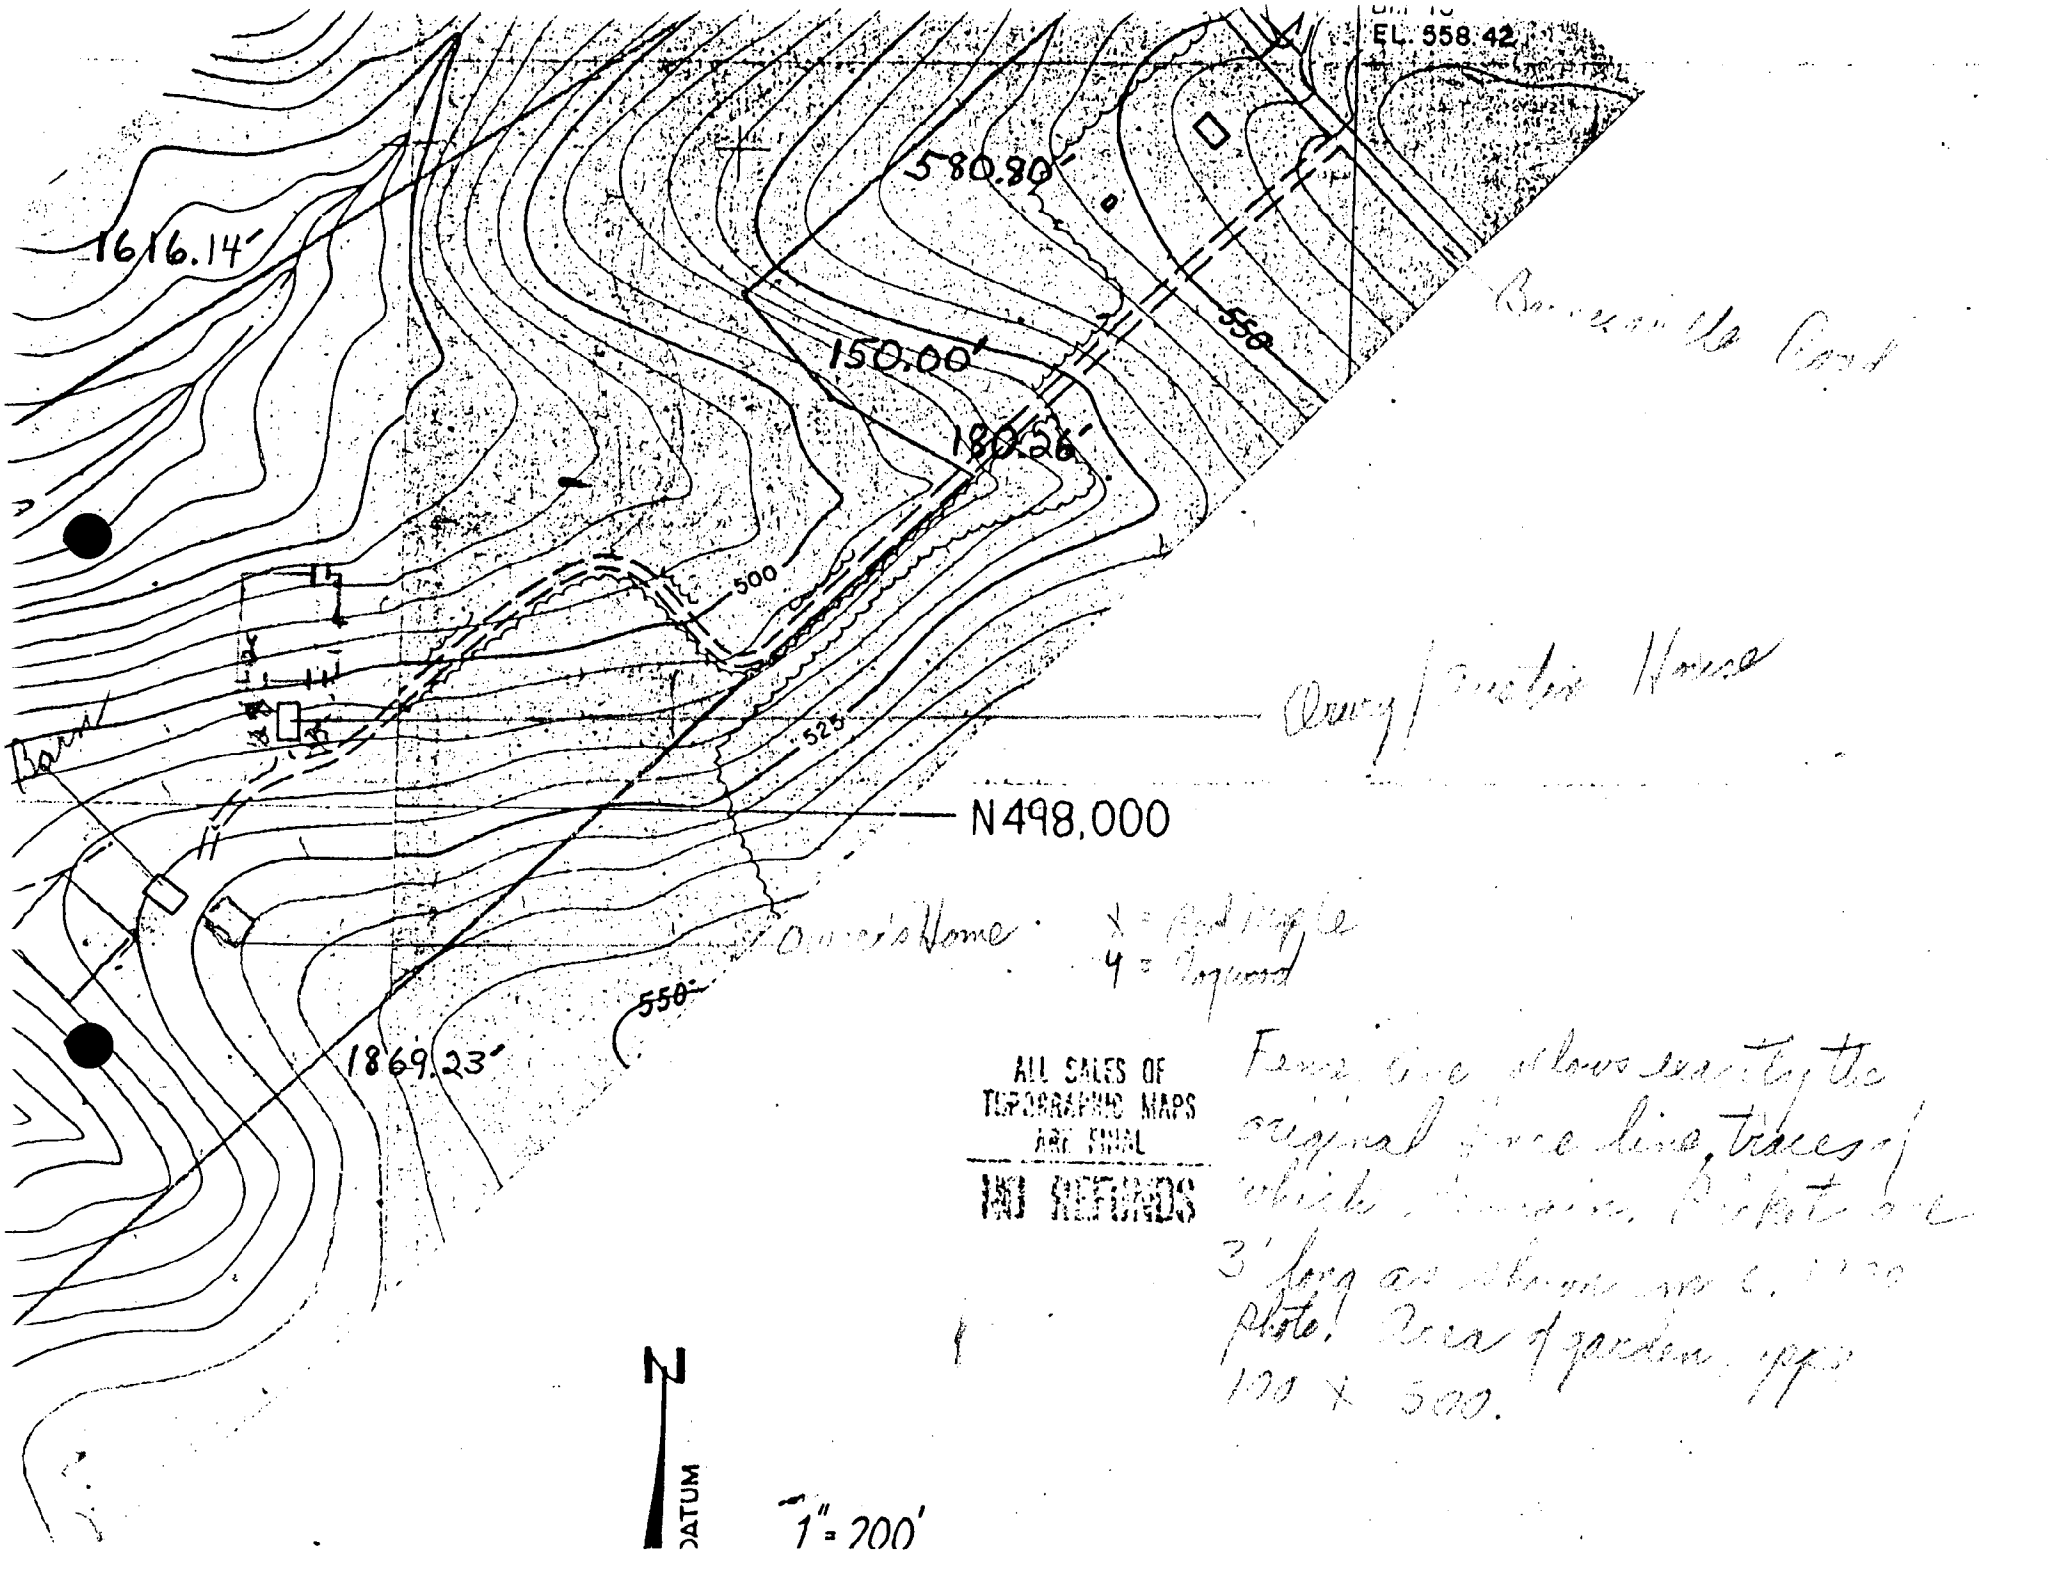 EL. 558.42
580.80'
1616.14'
550
Road
150.00'
180.26'
500
House
Barn
525
N498,000
Owner's Home
X =
Y = Dogwood
550
1869.23'
ALL SALES OF
TOPOGRAPHIC MAPS
ARE FINAL
NO REFUNDS
Fence line follows exactly the
original fence line, traces of
which remain. Picket are
3' long as shown in c.
photo! Area of garden, appx
100 X 300.
N
DATUM
1" = 200'